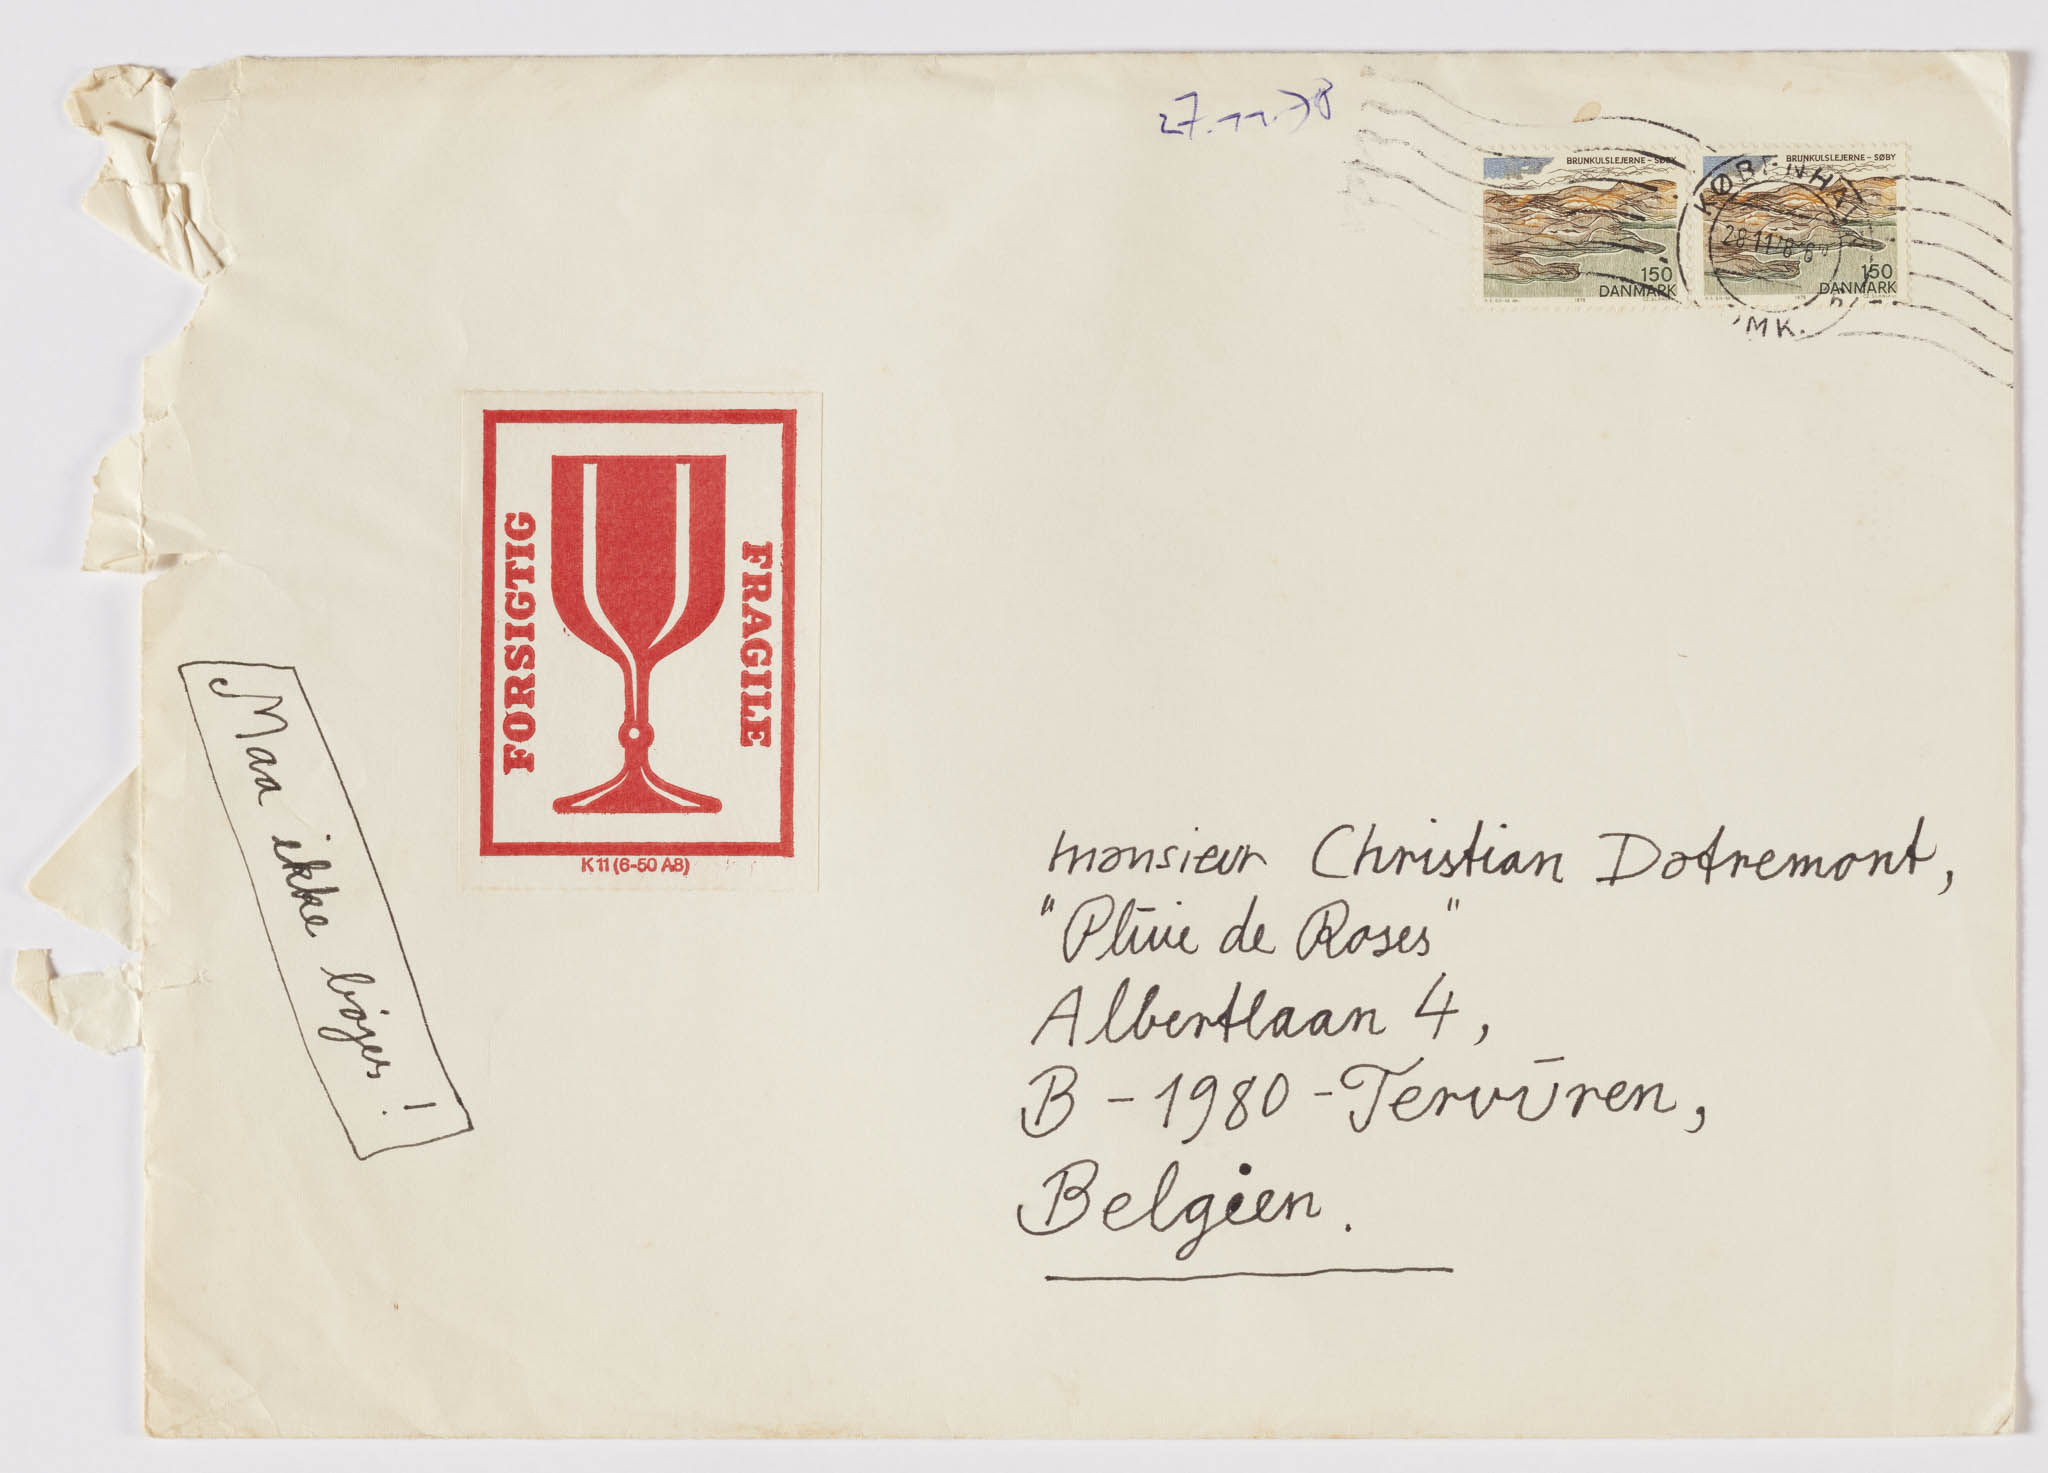 27.11.78
BRUNKULSLEJERNE – SØBY
150
DANMARK
BRUNKULSLEJERNE – SØBY
150
DANMARK
28.11.78
FORSIGTIG
FRAGILE
K 11 (6-50 A8)
Maa ikke bøjes !
monsieur Christian Dotremont,
"Plūie de Roses"
Albertlaan 4,
B – 1980 – Tervūren,
Belgien.